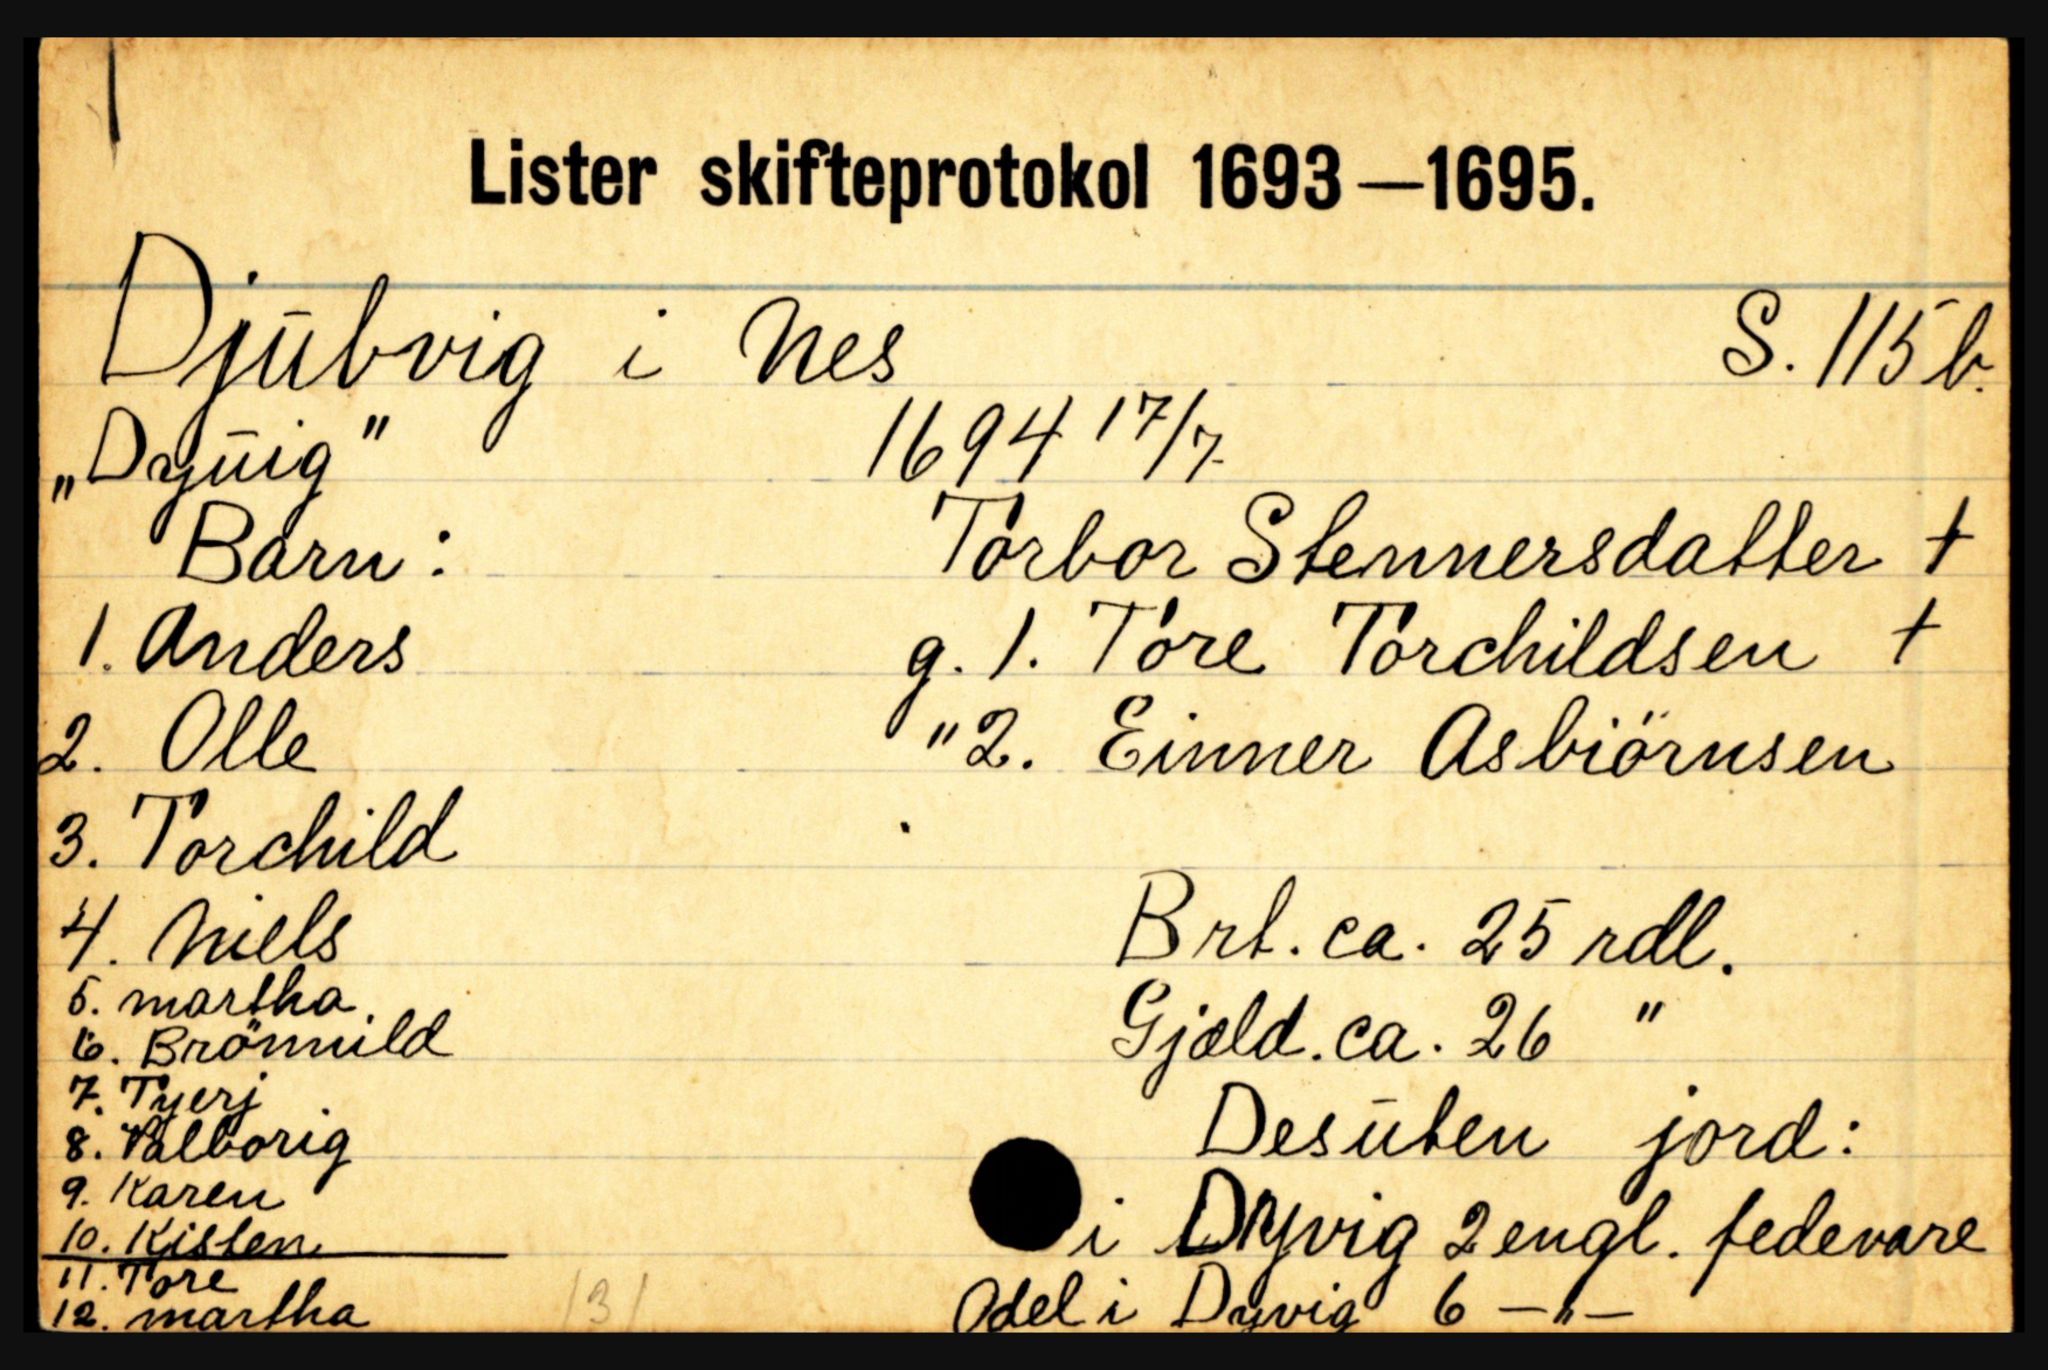 Lister skifteprotokol 1693—1695.
Djūbvig i Nes S. 115 b.
„Dyūig" 1694 17/7
Barn: Torbor Stennersdatter +
1. Anders g. 1. Tore Torchildsen +
2. Olle "2. Einner Asbiörnsen
3. Torchild
4. Niels Brt. ca. 25 rdl.
5. martha Gjæld. ca. 26 "
6. Brönnild
7. Tyerj Desūten jord:
8. Valborig
9. Karen i Dyvig 2 engl. fedevare
10. Kisten
11. Tore
12. martha 131 Odel i Dyvig 6 —"—